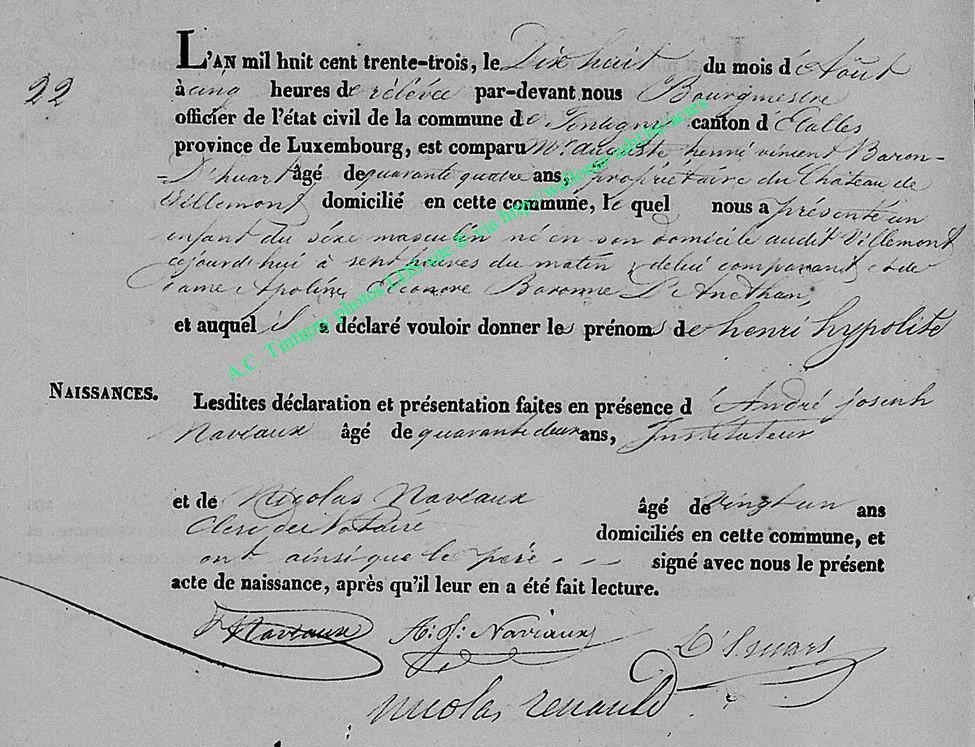 22
L'AN mil huit cent trente-trois, le Dix huit du mois d'Août
à cinq heures de rélévée par-devant nous Bourgmestre
officier de l'état civil de la commune de Tintigny canton d'Etalles
province de Luxembourg, est comparu Mr. auguste henri vincent Baron-
D'huart âgé de quarante quatre ans, propriétaire du Château de
Villemont domicilié en cette commune, le quel nous a présenté un
enfant du séxe masculin né en son domicile audit Villemont
cejourd'hui à sept heures du matin, de lui comparant et de
Dame Apoline Eléonore Baronne D'Anethan,
et auquel il a déclaré vouloir donner les prénoms de henri hypolite
NAISSANCES.
Lesdites déclaration et présentation faites en présence d'André joseph
Naviaux âgé de quarante deux ans, Instituteur
et de Nicolas Naveaux âgé de vingt un ans
Clerc de Notaire domiciliés en cette commune, et
ont ainsi que le père - - - signé avec nous le présent
acte de naissance, après qu'il leur en a été fait lecture.
Naveaux A: J: Naviaux D'huart
nicolas renauld
A.C. Tintigny photos LDS site & via http://wallonia-asbl.be/actes